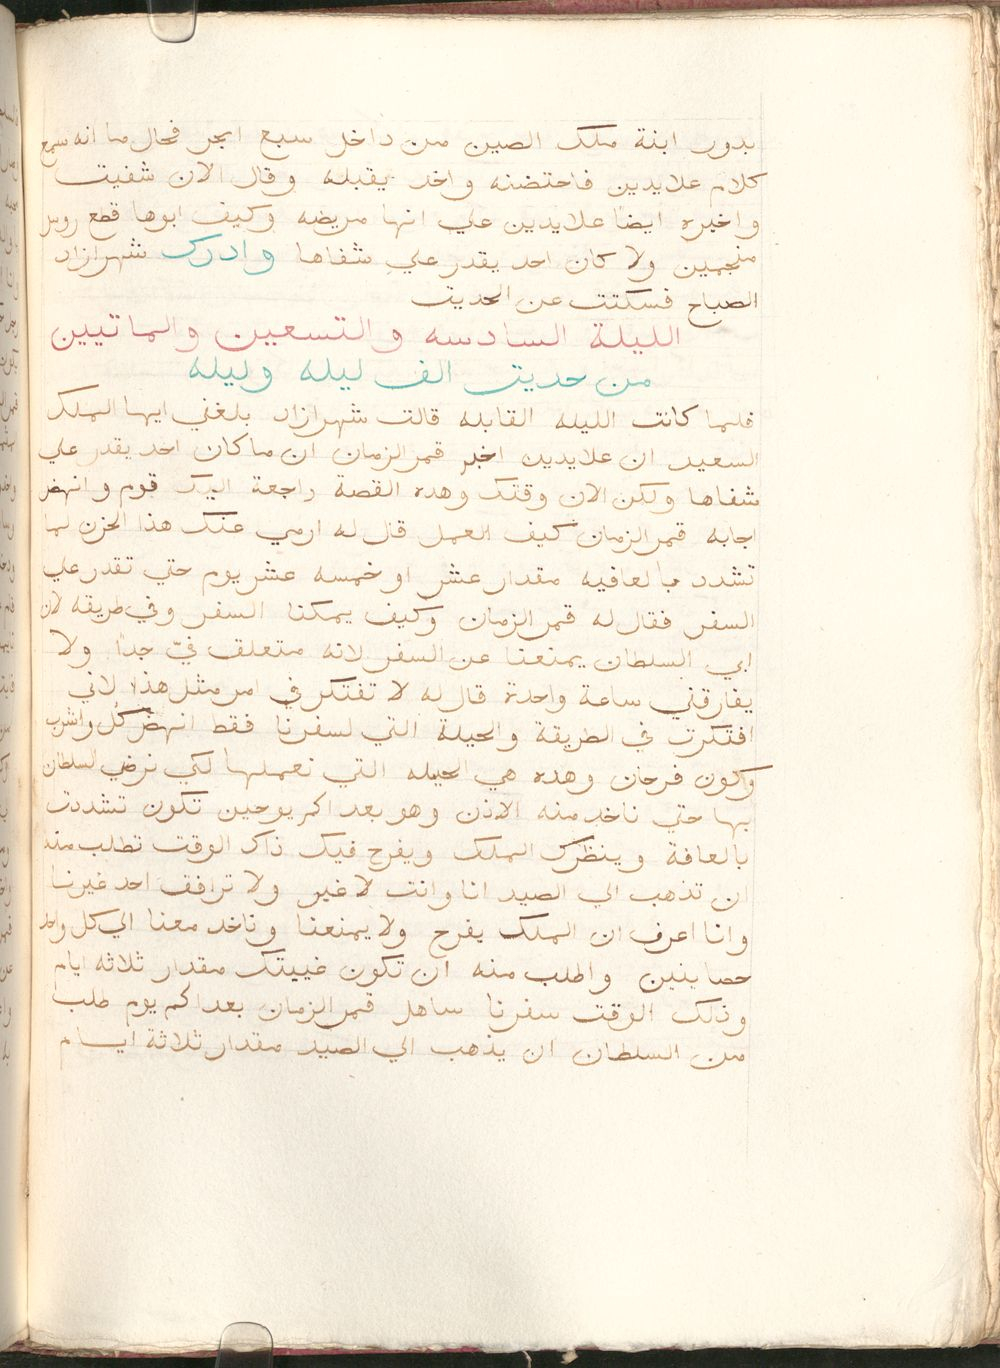 بدور ابنة ملك الصين من داخل سبع ابحر فحال ما انه سمع
كلام علايدين فاحتضنه واخد يقبله وقال الان شفيت
واخبره ايضا علايدين علي انها مريضه وكيف ابوها قطع روس
منجمين ولا كان احد يقدر علي شفاها وادرك شهرازاد
الصباح فسكتت عن الحديت
الليلة السادسه والتسعين والماتيين
من حديت الف ليله وليله
فلما كانت الليله القابله قالت شهرازاد بلغني ايها الملك
السعيد ان علايدين اخبر قمر الزمان ان ما كان احد يقدر علي
شفاها ولكن الان وقتك وهده القصة راجعة اليك قوم وانهض
اجابه قمر الزمان كيف العمل قال له ارمي عنك هذا الحزن لما
تشدد بالعافيه مقدار عشر او خمسه عشر يوم حتي تقدر علي
السفر فقال له قمر الزمان وكيف يمكنا السفر وفي طريقه لان
ابي السلطان يمنعنا عن السفر لانه متعلق فيّ جداً ولا
يفارقني ساعة واحدة قال له لا تفتكر في امر مثل هذا لاني
افتكرت في الطريقة والحيلة التي لسفرنا فقط انهض كل واشرب
وكون فرحان وهده هي الحيله التي نعملها لكي نرضي السلطان
بها حتي ناخد منه الاذن وهو بعد اكم يومين تكون تشددت
بالعافة وينظرك الملك ويفرح فيك ذاك الوقت تطلب منه
ان تذهب الي الصيد انا وانت لا غير ولا ترافق احد غيرنا
وانا اعرف ان الملك يفرح ولا يمنعنا وناخد معنا الي كل واحد
حصانين واطلب منه ان تكون غيبتك مقدار ثلاثه ايام
وذلك الوقت سفرنا ساهل قمر الزمان بعد اكم يوم طلب
من السلطان ان يذهب الي الصيد مقدار ثلاثة ايام